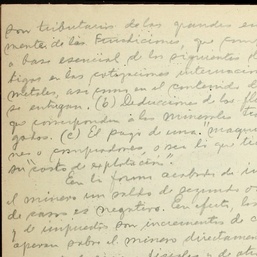 son tributarias de las grandes es
mente de las Fundiciones, que son
o base esencial de los siguientes
tigas en las cotizaciones internacion
metales, asi como en el contenido d
se entregan. (b) Deducciones de los fle
que corresponden a los minerales
gados. (c) El pago de una maqui
ne o compradores, o sea lo que
su "costo de explotación".
En la forma acabada de in
el minero un saldo de segundo o
de casos es negativo. En efecto, los
y de impuestos son incrementos de
operan sobre el minero directamen